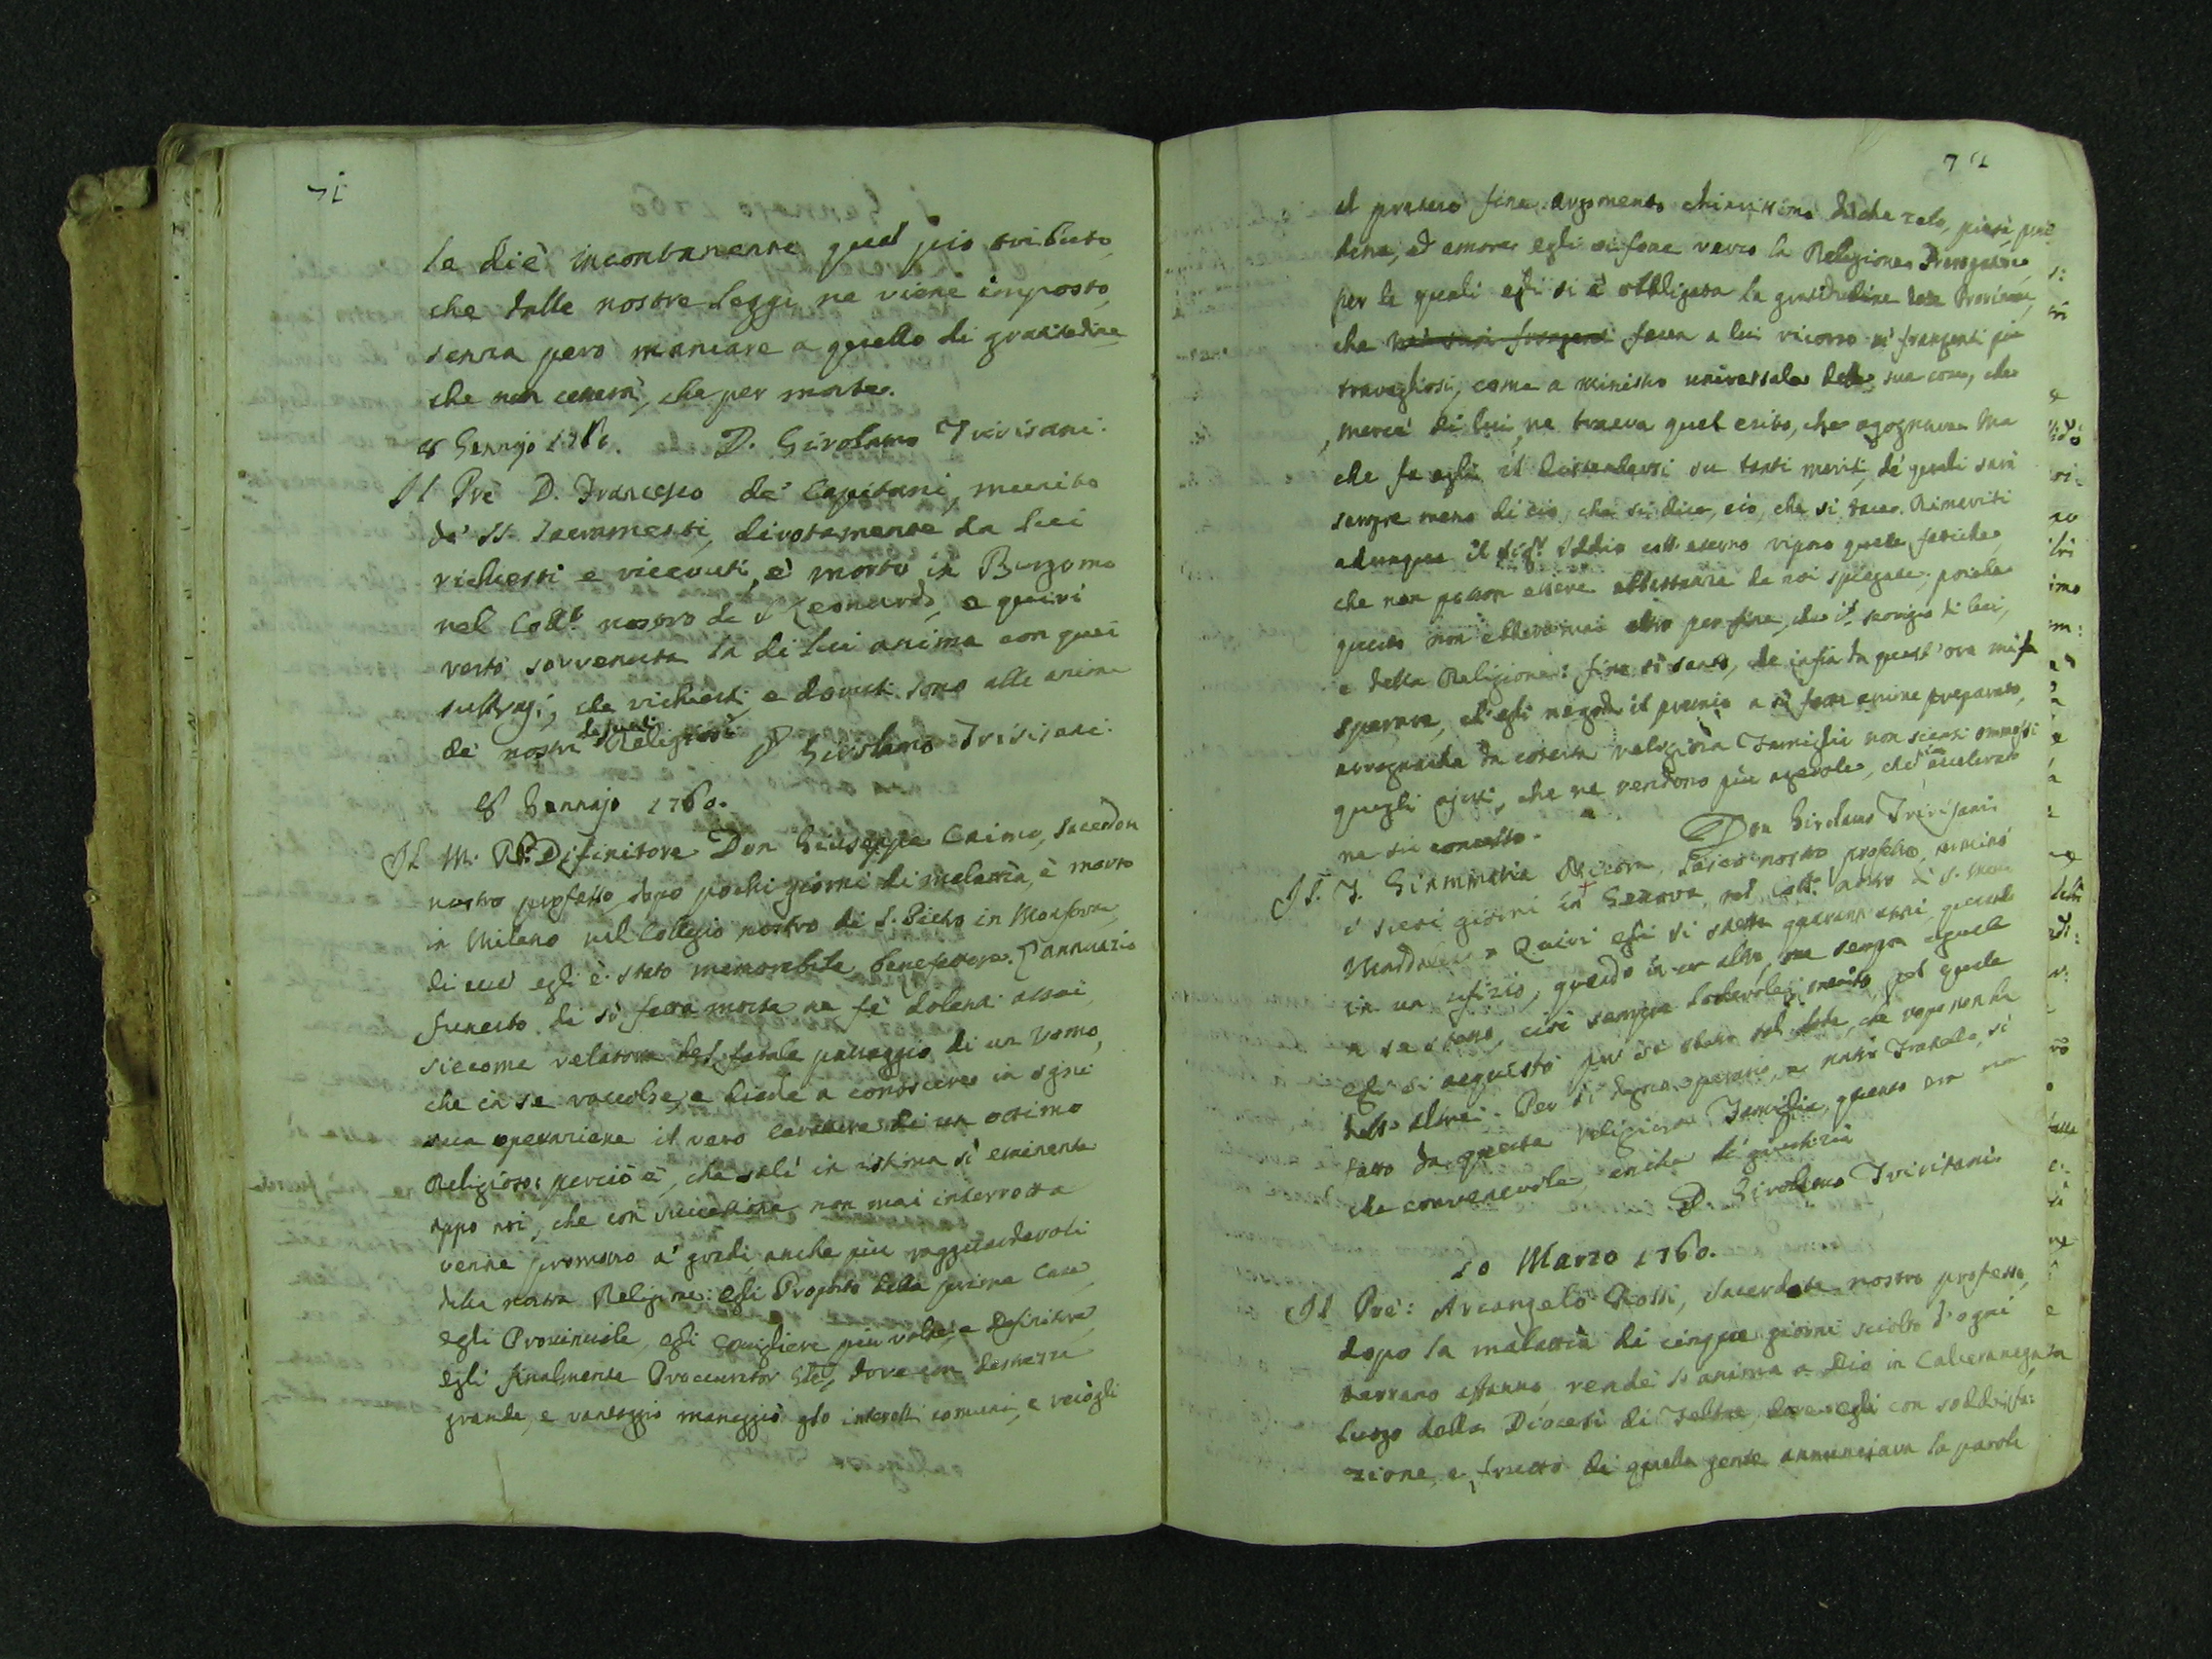 71
le diè incontanente quel pio tributo,
che dalle nostre Leggi ne viene imposto,
senza però mancare a quello di gratitudine
che non cesserà, che per morte.
8 Gennajo 1760. D. Girolamo Trivisani.
Il Pre D. Francesco de' Capitani, munito
de' SS. Sacramenti, divotamente da lui
richiesti e ricevuti, è morto in Bergamo
nel Coll.o nostro di S. Leonardo, e quivi
restò sovvenuta la di lui anima con quei
suffragj, che richiesti, e dovuti sono alle anime
de' nostri defunti Religiosi D Girolamo Trivisani.
8 Gennajo 1760.
Il M. R. P. Difinitore Don Giuseppe Caimo, Sacerdote
nostro professo, dopo pochi giorni di malattia, è morto
in Milano nel Collegio nostro di S. Pietro in Monforte,
di cui egli è stato memorabile benefattore. L'annunzio
funesto di sì fera morte ne fè dolenti assai,
siccome relatore del fatale passaggio di un Uomo,
che in se raccolse, e diede a conoscere in ogni
sua operazione il vero carattere di un ottimo
Religioso: perciò è, che salì in istima sì eminente
appo noi, che con successione non mai interrotta
venne promosso a' gradi anche più ragguardevoli
della nostra Religione: egli Proposto della prima Casa
egli Provinciale, egli Consigliere più volte, e Definitore
egli finalmente Proccurator Gle, dove con destrezza
grande, e vantaggio maneggiò gl'o interessi comuni, e
72
il prezioso fine argomento chiarissimo di che zelo, pietà,
ed amore egli si fosse verso la Religione. Prerogative,
per le quali egli si è obbligata la gratitudine
che ne' suoi frangenti facea a lui ricorso ne' frangenti più
travagliosi, come a Ministro universale della sua cosa, che
mercè di lui, ne traeva quel esito, che agognava. Ma
che fa egli il distendersi su tanti meriti, de' quali sarà
sempre meno di ciò, che si dice, ciò, che si tace. Rimeriti
adunque il Sig.r Iddio coll eterno riposo quelle fatiche,
che non posson essere abbastanza da noi spiegate; poichè
questo non ebbero mai altro per fine, che il servigio di lui,
e della Religione: fine sì santo, che infin da quest'ora mi fa
sperare, ch'egli ne goda il premio
da cotesta religiosa Famiglia non siensi ommessi
quegli ajuti, che ne rendono più agevole, che accelerato
ne sia concesso. Don Girolamo Trivisani
Il F. Giammaria Laico nostro professo, terminò
i suoi giorni in Genova, nel Coll.o nostro di S. Maria
Maddalena. Quivi egli si stette quarant'anni, quando
in un ufizio, quando in un altro, ma sempre eguale
a se stesso, così sempre lodevole
egli si acquistò
Per sì degno operario, e nostro Fratello, si
fatto da questa religiosa Famiglia, quanto era non
che convenevole, anche di giustizia
D. Girolamo Trivisani.
10 Marzo 1760.
Il Pre: Arcangelo Rossi, Sacerdote nostro professo,
dopo la malattia di cinque giorni sciolto d'ogni
terreno affanno, rendè l'anima a Dio in
luogo della Diocesi di Feltre, dove egli con soddisfa:
zione, e frutto di quella gente annunziava la parola